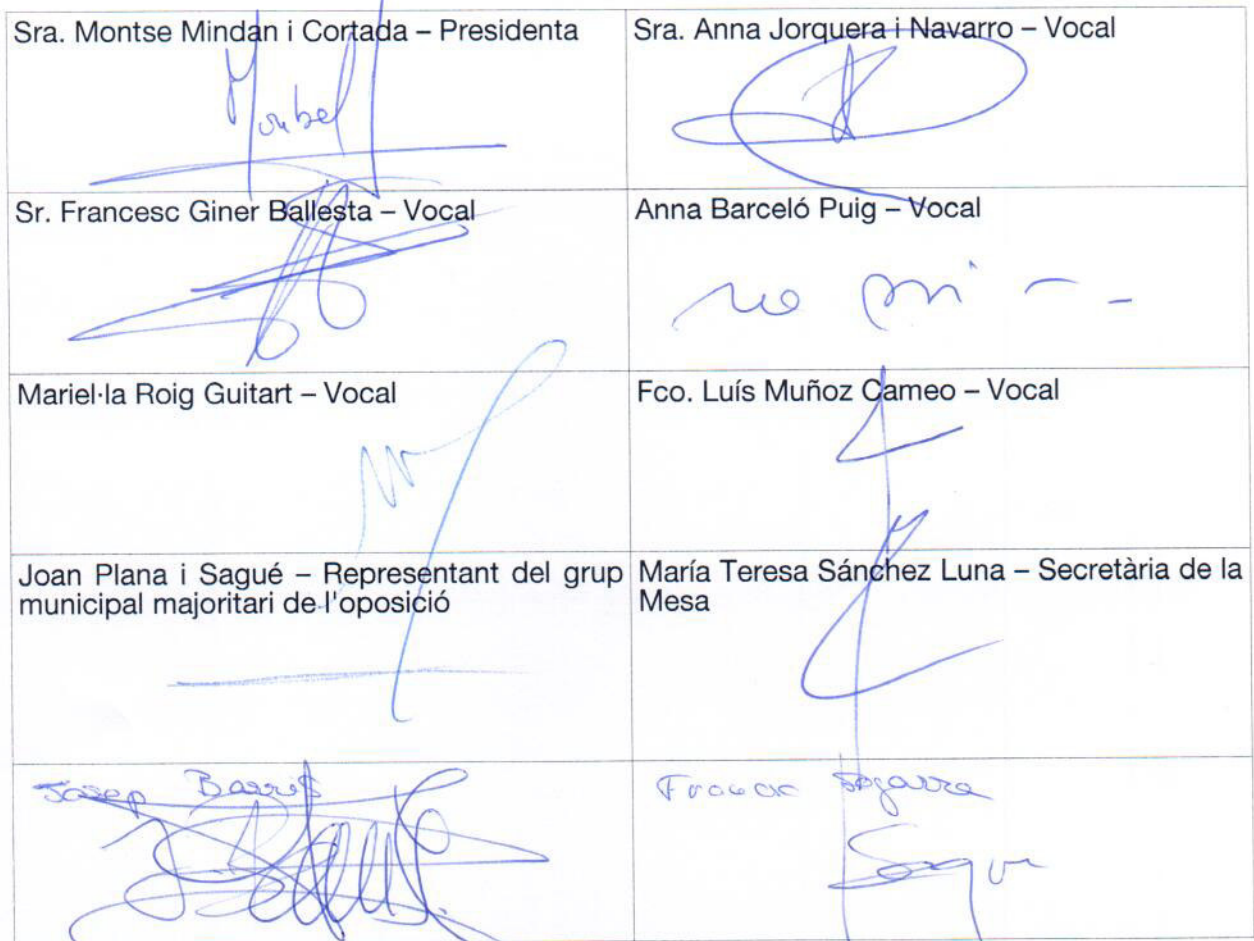 Sra. Montse Mindan i Cortada – Presidenta
Sra. Anna Jorquera i Navarro – Vocal
Sr. Francesc Giner Ballesta – Vocal
Anna Barceló Puig – Vocal
Mariel·la Roig Guitart – Vocal
Fco. Luís Muñoz Cameo – Vocal
Joan Plana i Sagué – Representant del grup
municipal majoritari de l'oposició
María Teresa Sánchez Luna – Secretària de la
Mesa
Josep